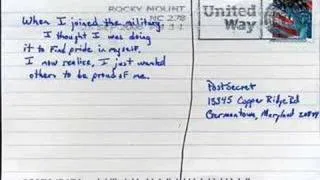 ROCKY MOUNT
NC 278
United
Way
When I joined the military,
I thought I was doing
it to find pride in myself.
I now realize, I just wanted
others to be proud of me.
PostSecret
13345 Copper Ridge Rd
Germantown, Maryland 20874